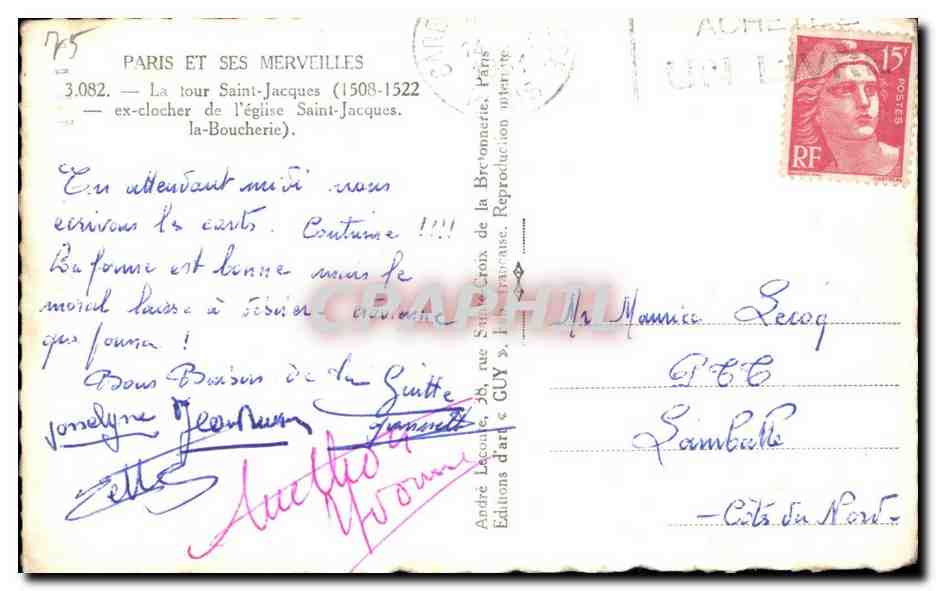 75
PARIS ET SES MERVEILLES
3.082. — La tour Saint-Jacques (1508-1522
— ex-clocher de l'église Saint-Jacques.
la-Boucherie).
En attendant midi nous
écrivons les carts. Coutume !!!!
La forme est bonne mais le
moral laisse à désirer
que !
Bons Baisers de la Guitte
Josselyne
Yvonne
André Leconte, 38, rue Sainte-Croix de la Bretonnerie, Paris
Editions d'art « GUY ». française. Reproduction interdite.
CPAPHIL
ACHETEZ
UN
15F
POSTES
RF
Mr Maurice Lecoq
PTT
Lamballe
-Côtes du Nord-